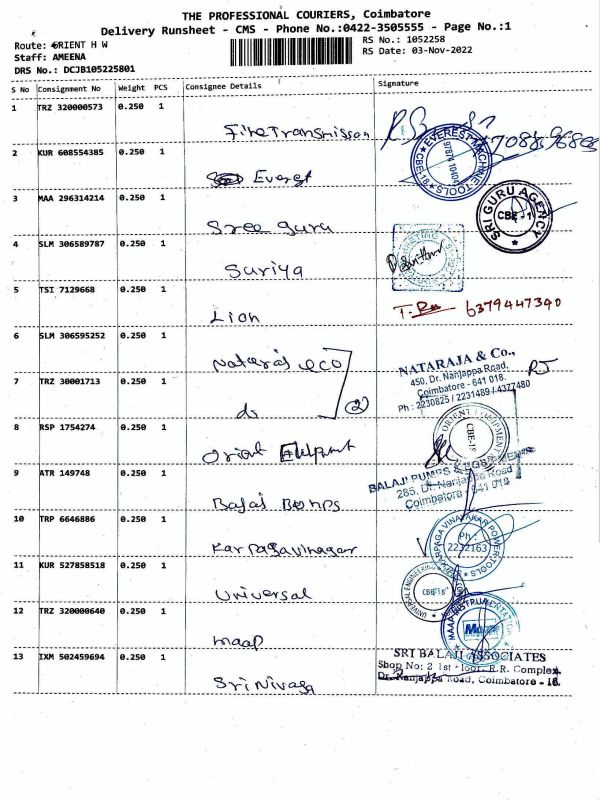 THE PROFESSIONAL COURIERS, Coimbatore
Delivery Runsheet - CMS - Phone No.:0422-3505555 - Page No.:1
Route: ORIENT H W
RS No.: 1052258
Staff: AMEENA
RS Date: 03-Nov-2022
DRS No.: DCJB105225801
S No Consignment No Weight PCS Consignee Details Signature
1 TRZ 320000573 0.250 1
Fine Transmisson
EVEREST MACHINE TOOLS CBE-18
2 KUR 608554385 0.250 1
Everest
3 MAA 296314214 0.250 1
Sree Guru
SRI GURU AGENCY
CBE - 1
4 SLM 306589787 0.250 1
Suriya
5 TSI 7129668 0.250 1
Lion
6379447340
6 SLM 306595252 0.250 1
Nataraj eco
NATARAJA & Co.,
450, Dr. Nanjappa Road,
Coimbatore - 641 018.
Ph : 2230825 / 2231489 / 4377480
RJ
7 TRZ 30001713 0.250 1
do
2
8 RSP 1754274 0.250 1
Orient
ORIENT EQUIPMENT
CBE-18
9 ATR 149748 0.250 1
Balaji
BALAJI PUMPS &
285, Dr. Nanjappa Road
Coimbatore - 641 018
10 TRP 6646886 0.250 1
Karpagavinagar
KARPAGA VINAYAKAR POWER TOOLS
Ph :
2232163
11 KUR 527858518 0.250 1
Universal
UNIVERSAL ENGINEERING
CBE-18
12 TRZ 320000640 0.250 1
maap
MAAP INSTRUMENTATION
13 IXM 502459694 0.250 1
Srinivasa
SRI BALAJI ASSOCIATES
Shop No: 2 1st Floor, R.R. Complex
Dr. Nanjappa Road, Coimbatore - 18.